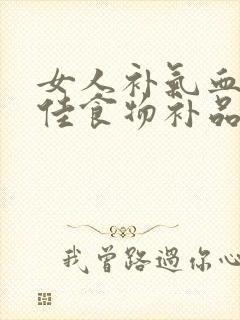 女人补氣血
佳食物补品
我曾路過你心